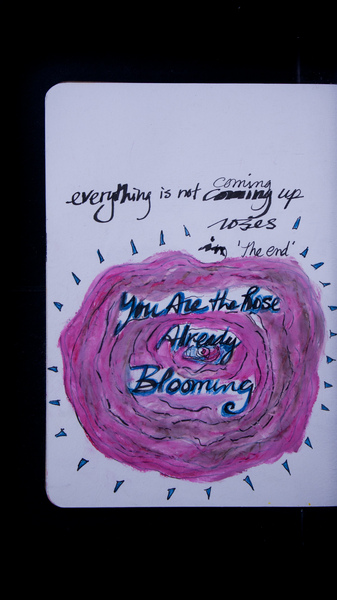 coming
everything is not coming up
roses
in 'the end'
You Are the Rose
Already
Blooming